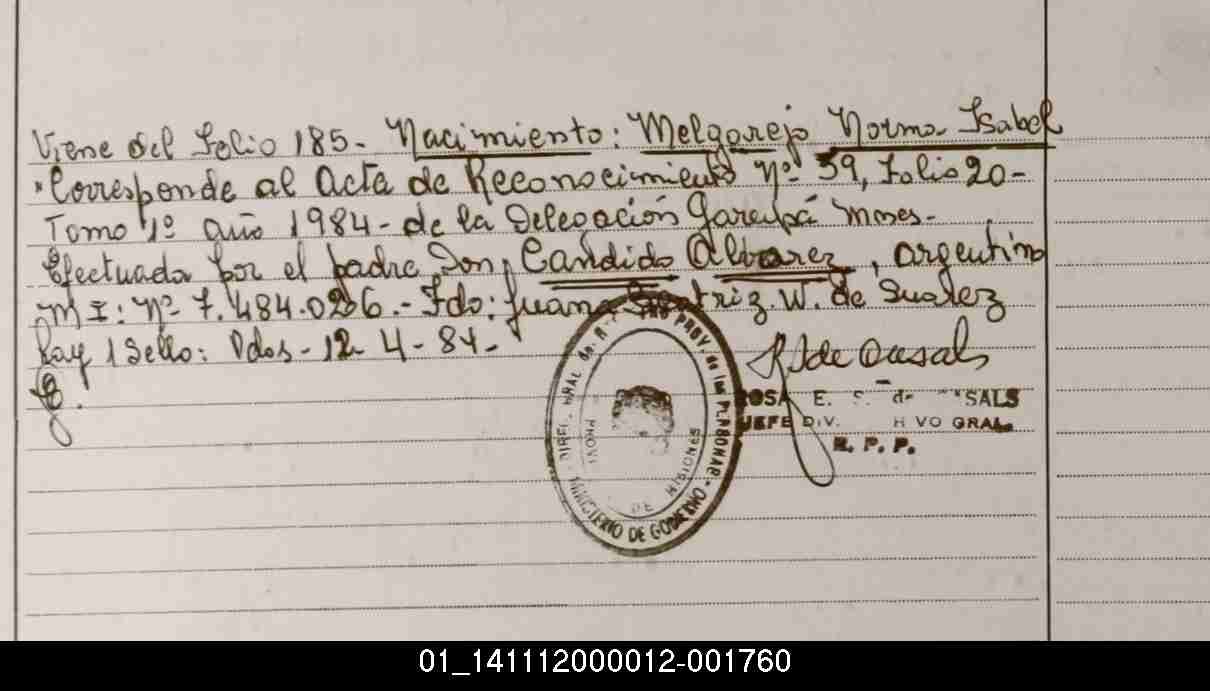 Viene del Folio 185- Nacimiento: Melgarejo Norma Isabel
"Corresponde al Acta de Reconocimiento Nº 39, Folio 20-
Tomo 1º año 1984- de la Delegación Garupá Mnes-
Efectuada por el padre Don, Candido Alvarez, argentino
M I: Nº 7.484.026.- Fdo: Juana Beatriz W. de Suarez
hay 1 Sello: Pdas- 12- 4- 84-
MINISTERIO DE GOBIERNO
DE MISIONES
ROSA E. S. de SALS
JEFE DIV. H VO GRAL.
R. P. P.
01_141112000012-001760